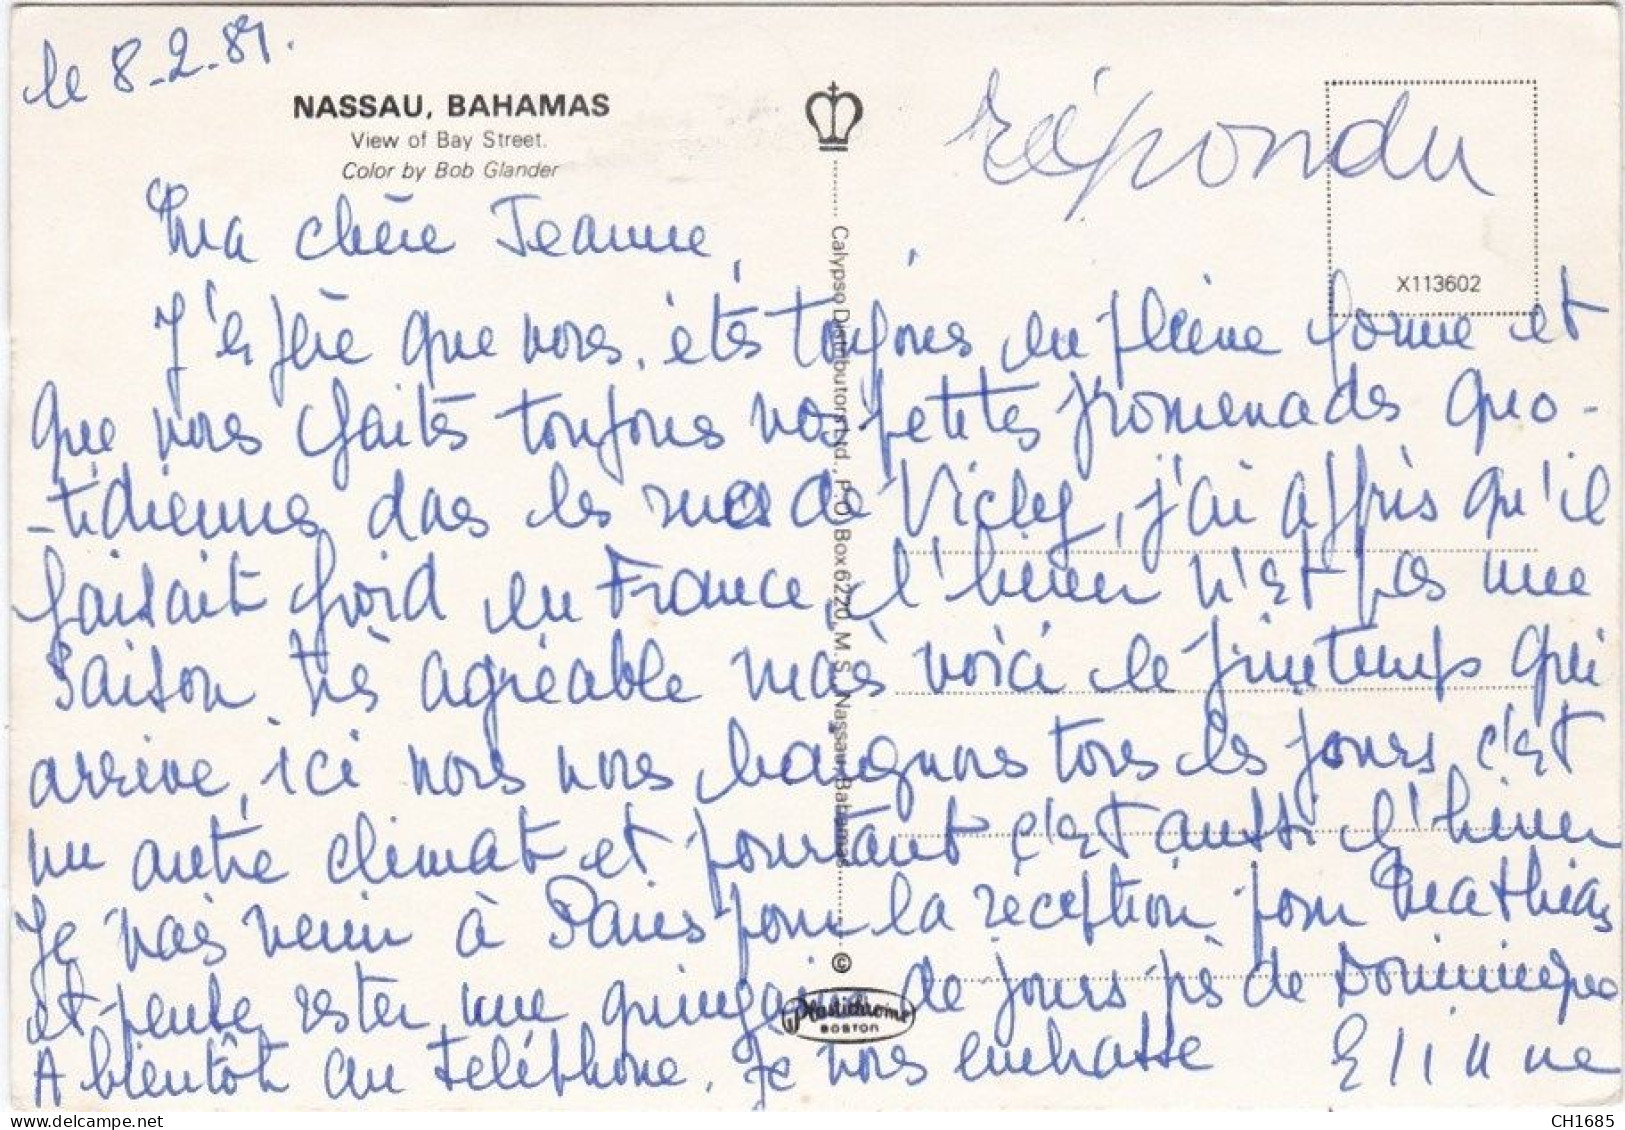 le 8-2-89.
NASSAU, BAHAMAS
View of Bay Street.
Color by Bob Glander
répondu
X113602
Calypso Distributors Ltd., P.O. Box 6220, M.S., Nassau, Bahamas
Ma chère Jeanne,
J'espère que vous êtes toujours en pleine forme et
que vous faites toujours vos petites promenades quo-
-tidiennes dans les rues de Vichy, j'ai appris qu'il
faisait froid en France, l'hiver n'est pas une
saison très agréable mais voici le printemps qui
arrive, ici nous nous baignons tous les jours c'est
un autre climat et pourtant c'est aussi l'hiver
Je vais venir à Paris pour la réception pour Mathias
et pense rester une quinzaine de jours près de Dominique
A bientôt au téléphone. Je vous embrasse Eliane
©
Plastichrome
BOSTON
CH1685